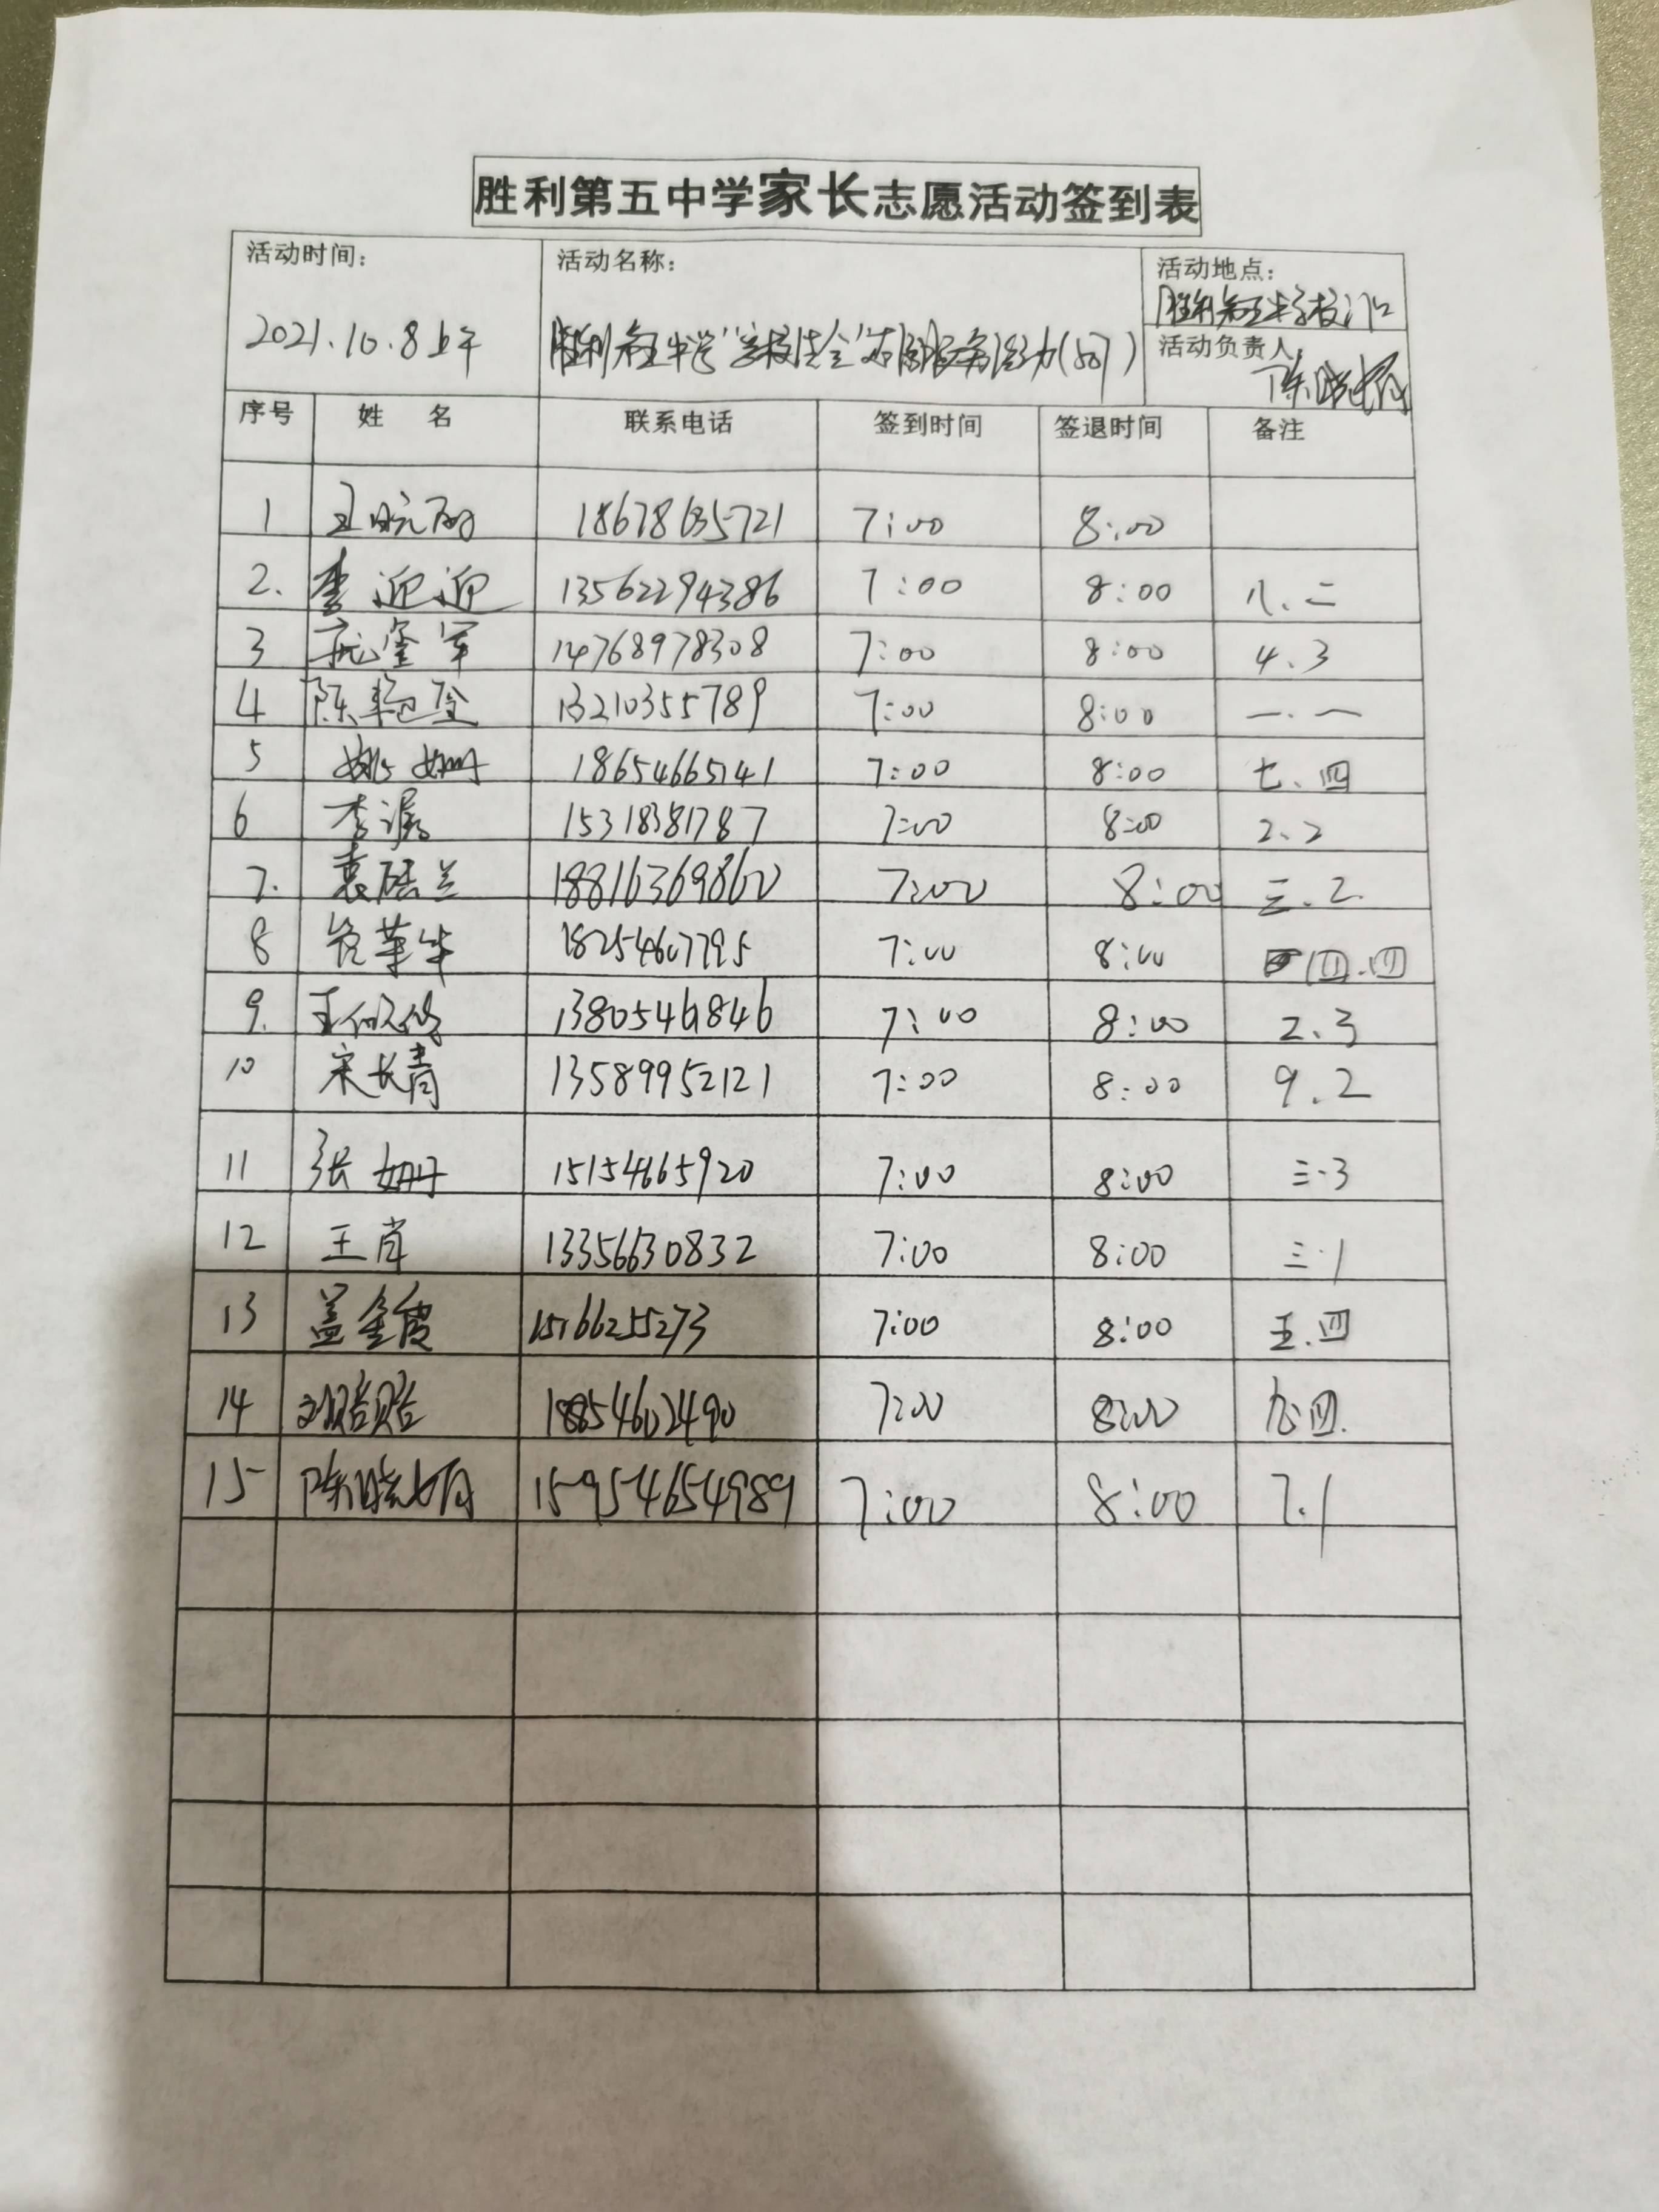 胜利第五中学家长志愿活动签到表
活动时间: 活动名称: 活动地点:
2021.10.8上午 胜利第五中学"学校安全"志愿服务活动 胜利第五中学校门口
活动负责人
序号 姓 名 联系电话 签到时间 签退时间 备注
1 18678635721 7:00 8:00
2. 李迎迎 13562294386 7:00 8:00 八、二
3 14768978308 7:00 8:00 4.3
4 陈艳 13210355789 7:00 8:00 一.一
5 姚姗 18654665141 7:00 8:00 七、四
6 李 15318381787 7:00 8:00 2、2
7. 兰 18816369860 7:00 8:00 三.2.
8 18254607795 7:00 8:00 四.四
9. 王 13805461846 7:00 8:00 2.3
10 宋长青 13589952121 7:00 8:00 9.2
11 张姗 15154665920 7:00 8:00 三.3
12 王肖 13356630832 7:00 8:00 三.1
13 盖金 15166255273 7:00 8:00 五.四
14 刘贻贻 18854602490 7:00 8:00 九.四.
15 陈晓 15954654989 7:00 8:00 7.1